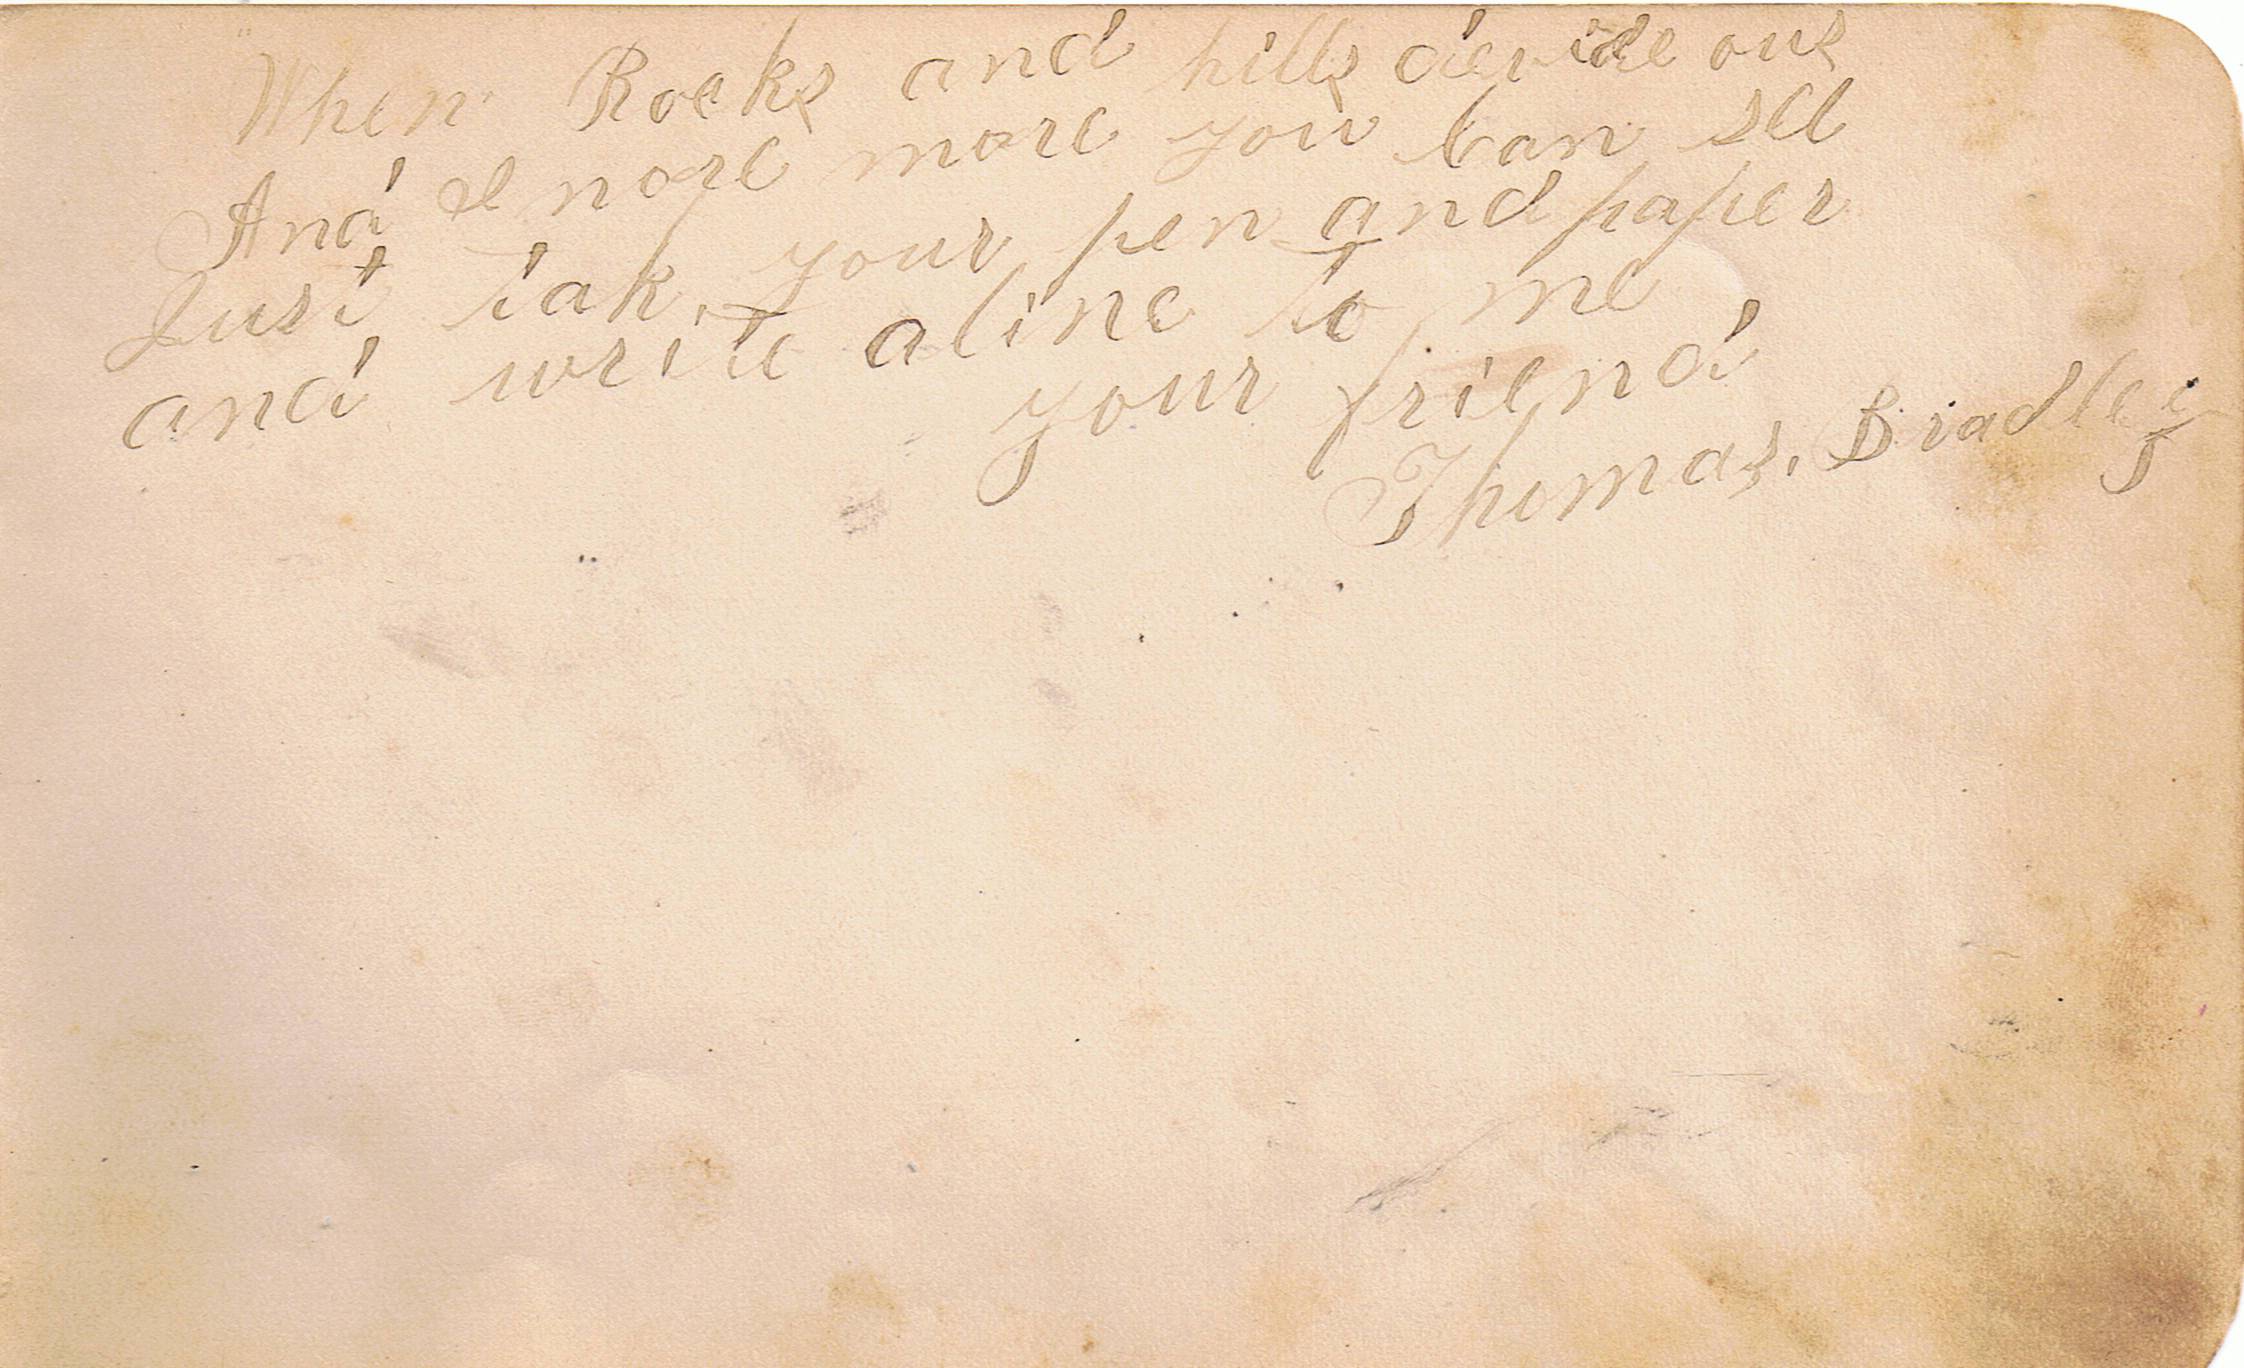 When Rocks and hills devide ous
And I nore more you Can see
Just tak your pen and paper
and write aline to me
your friend
Thomas, Bradley